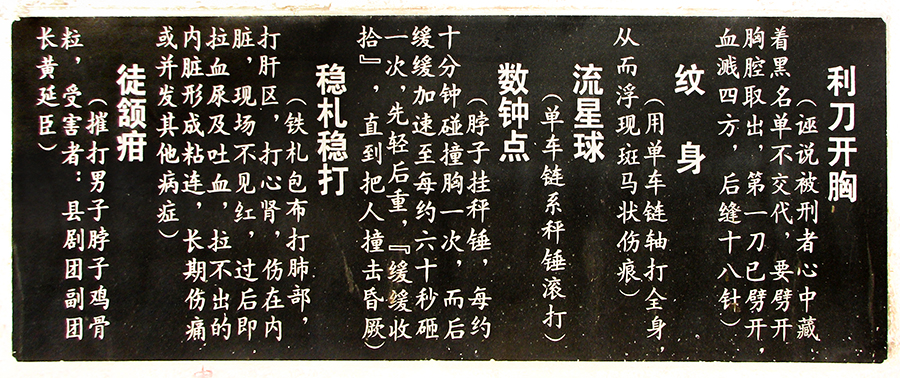 利刀开胸
（诬说被刑者心中藏
着黑名单不交代，要劈开
胸腔取出，第一刀已劈开，
血溅四方，后缝十八针）
纹身
（用单车链轴打全身，
从而浮现斑马状伤痕）
流星球
（单车链系秤锤滚打）
数钟点
（脖子挂秤锤，每约
十分钟碰撞胸一次，而后
缓缓加速至每约六十秒砸
一次，先轻后重，『缓缓收
拾』，直到把人撞击昏厥）
稳札稳打
（铁札包布打肺部，
打肝区，打心肾，伤在内
脏，现场不见红，过后即
拉血尿及吐血，拉不出的
内脏形成粘连，长期伤痛
或并发其他病症）
徒颔疳
（摧打男子脖子鸡骨
粒，受害者：县剧团副团
长黄延臣）